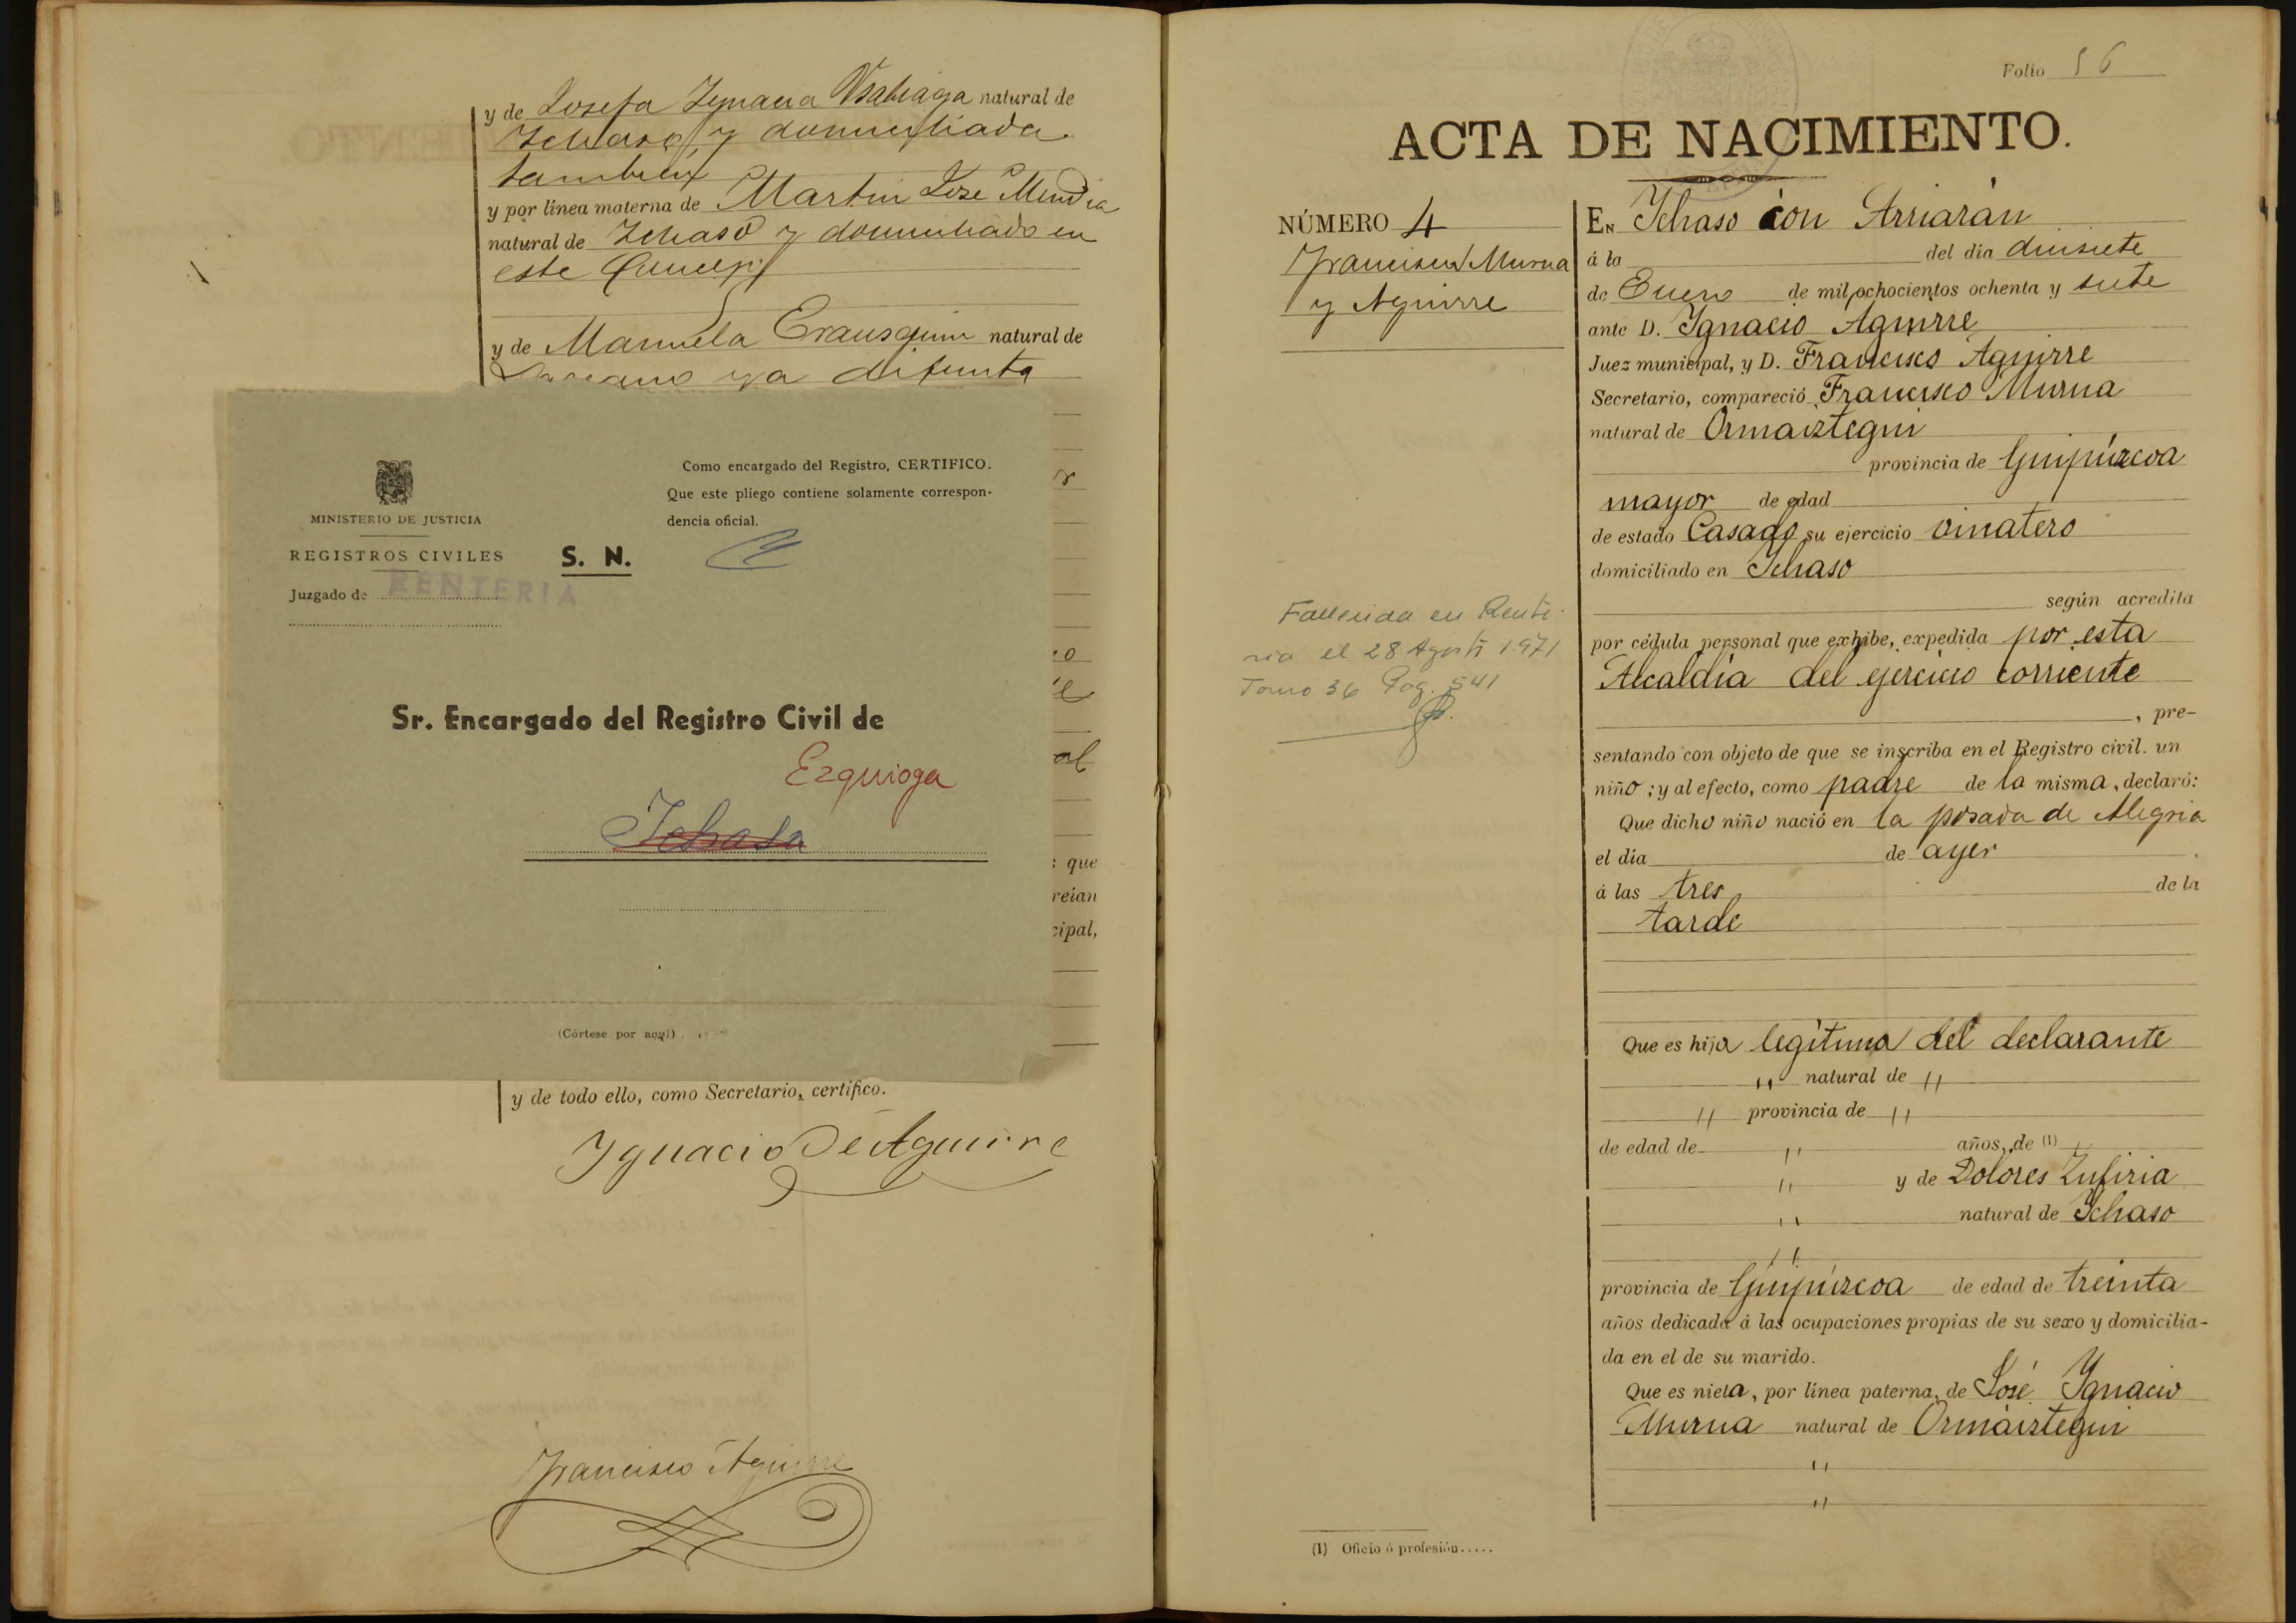 y de Josefa Ygnacia Usabiaga natural de
Ichaso y domiciliada
tambien
y por línea materna de Martin José Mendia
natural de Ichaso y domiciliado en
este Concejo
y de Manuela Erausquin natural de
ya difunta
MINISTERIO DE JUSTICIA
REGISTROS CIVILES
Juzgado de RENTERIA
S. N.
Como encargado del Registro, CERTIFICO.
Que este pliego contiene solamente correspon-
dencia oficial.
Sr. Encargado del Registro Civil de
Ezquioga
Ichaso
(Córtese por aquí)
: que
reian
cipal,
y de todo ello, como Secretario, certifico.
Ygnacio de Aguirre
Francisco Aguirre
Folio 56
ACTA DE NACIMIENTO.
NÚMERO 4
Francisca Murua
y Aguirre
Fallecida en Rente-
ria el 28 Agosto 1971
Tomo 36 Pag. 541
EN Ychaso con Arriarán
á la del día diecisiete
de Enero de mil ochocientos ochenta y siete
ante D. Ygnacio Aguirre
Juez municipal, y D. Francisco Aguirre
Secretario, compareció Francisco Murua
natural de Ormaiztegui
provincia de Guipúzcoa
mayor de edad
de estado Casado su ejercicio vinatero
domiciliado en Ychaso
según acredita
por cédula personal que exhibe, expedida por esta
Alcaldía del ejercicio corriente
, pre-
sentando con objeto de que se inscriba en el Registro civil. un
niño; y al efecto, como padre de la misma, declaró:
Que dicho niño nació en la posada de Alegria
el día de ayer
á las tres de la
tarde
Que es hija legítima del declarante
" natural de "
" provincia de "
de edad de " años, de (1) "
" y de Dolores Zufiria
" natural de Ychaso
"
provincia de Guipúzcoa de edad de treinta
años dedicada á las ocupaciones propias de su sexo y domicilia-
da en el de su marido.
Que es nieta, por línea paterna, de José Ygnacio
Murua natural de Ormaiztegui
"
"
(1) Oficio ó profesión.....